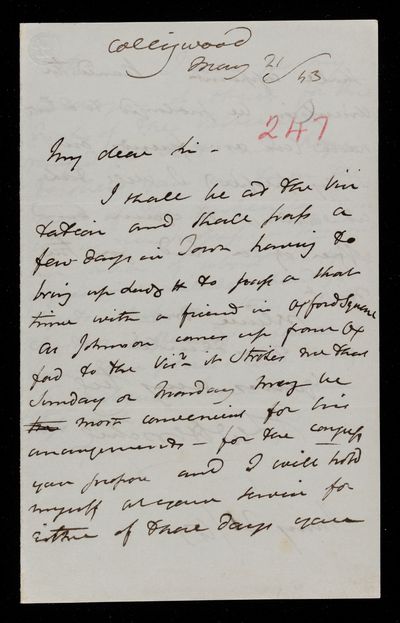 Collingwood
May 21/53
247
My dear Sir -
I shall be at the Visi
tation and shall pass a
few days in Town having to
bring up Lady H to pass a short
time with a friend in Oxford Square
as Johnson comes up from Ox
ford to the Visn it strikes me that
Sunday or Monday may be
most convenient for his
arrangements - for the congress
you propose and I will hold
myself at your service for
Either of those days you